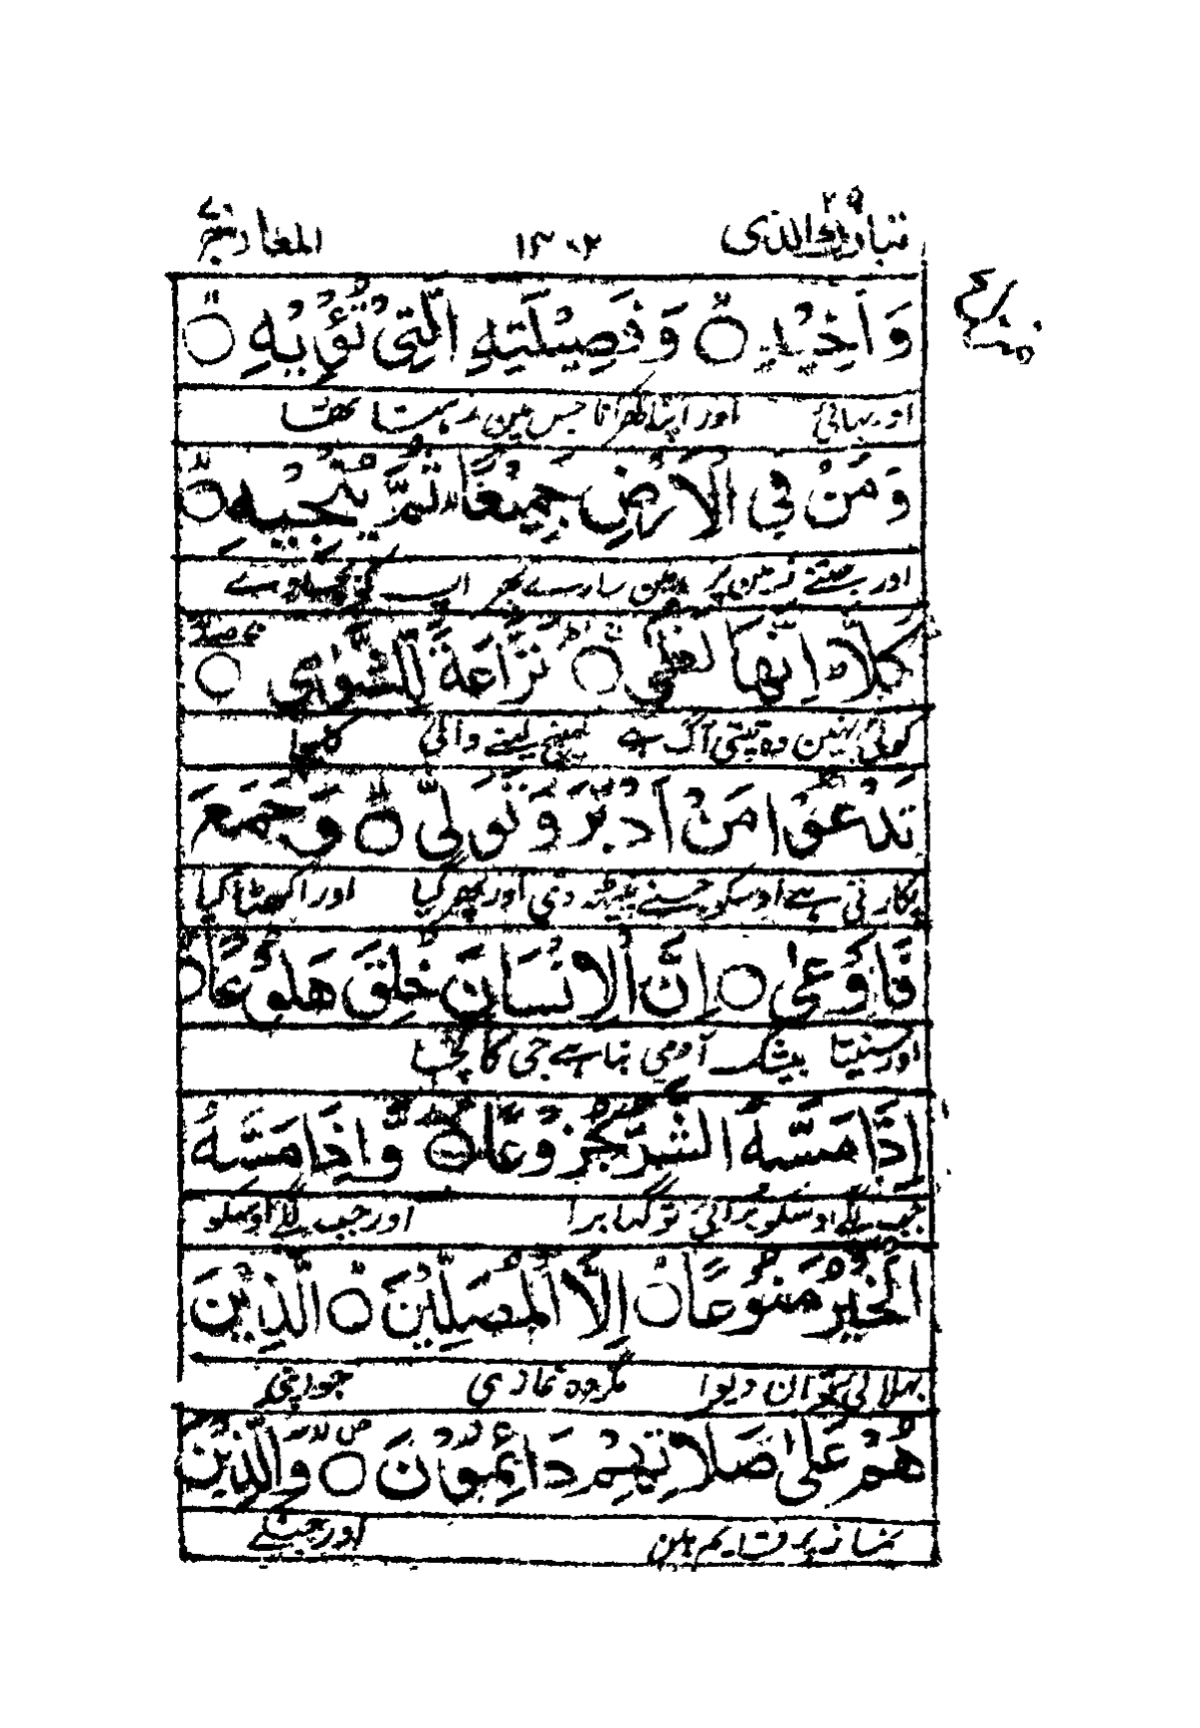 تبارك الذى ٢٩ ١٣٠٢ المعارج ٧٠
وَاَخِيْهِ ۝ وَفَصِيْلَتِهِ الَّتِىْ تُؤْيِهِ ۝
اور بهائى اور اپنا گهرانا جس مين رہتا تھا
وَمَنْ فِى الْاَرْضِ جَمِيْعًا ثُمَّ يُنْجِيْهِ ۝
اور جتنے زمين پر ہين سارے پھر اپ کو بچاوے
كَلَّا ؕ اِنَّهَا لَظٰى ۝ نَزَّاعَةً لِّلشَّوٰى ۝
كوئى نہين وہ تپتى آگ ہے كهينچ لينے والى كليجا
تَدْعُوْا مَنْ اَدْبَرَ وَتَوَلّٰى ۝ وَجَمَعَ
پكارتى ہے اوسكو جسنے پيٹھ دى اور پھر گيا اور اكھٹا كيا
فَاَوْعٰى ۝ اِنَّ الْاِنْسَانَ خُلِقَ هَلُوْعًا ۝
اور سينتا بيشك آدمى بنا ہے جى كا كچا
اِذَا مَسَّهُ الشَّرُّ جَزُوْعًا ۝ وَّاِذَا مَسَّهُ
جب لگے اوسكو برائى تو گہابرا اور جب لگے اوسكو
الْخَيْرُ مَنُوْعًا ۝ اِلَّا الْمُصَلِّيْنَ ۝ الَّذِيْنَ
بہلائى تو ان ديوا مگر وہ نمازى جو اپنى
هُمْ عَلٰى صَلَاتِهِمْ دَآئِمُوْنَ ۝ وَالَّذِيْنَ
نماز پر قايم ہين اور جنكے